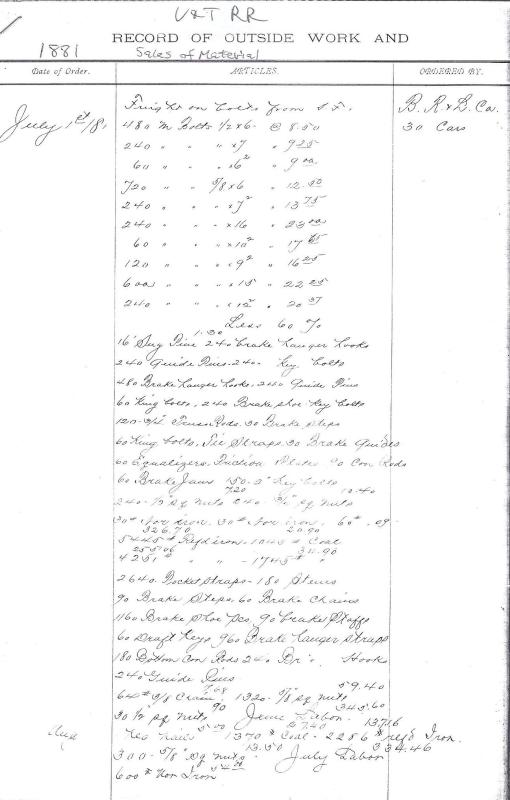 V&T RR
RECORD OF OUTSIDE WORK AND
1881 Sales of Material
Date of Order. ARTICLES. ORDERED BY.
Freight on bolts from S.F. B. R & L. Co.
July 1st/81 480 M Bolts 1/2 x 6 - @ 8.50 30 Cars
240 " " " x 7 " 9 25
60 " " " x 6 2 " 9 00
720 " " 5/8 x 6 " 12.50
240 " " " x 7 2 " 13 75
240 " " " x 16 " 23 00
60 " " " x 10 2 "
120 " " " x 9 2 " 16 25
600 " " " x 15 " 22 25
240 " " " x 12 2 "
Less 60 %
1.30
240 brake hanger hooks
240 Guide Pins - 240 - Key bolts
480 Brake hanger hooks, 240 Guide Pins
60 King bolts, 240 Brake shoe Key bolts
Truss Rods. 30 Brake Steps
60 King bolts, Tie Straps. 30 Brake Guides
60 Equalizers. Friction Plates Con Rods
60 Brake Jaws Key bolts
7.20 12.40
sq nuts 240 sq nuts
Nor iron. 30 # Nor iron. 60 #. 09
326.70 20.90
5445 # Refd iron. 1045 # Coal
255.06 311.90
4251 " " - 1745 # "
2640 Pocket straps - 180 Stems
90 Brake Steps. 60 Brake Chains
1160 Brake Shoe pcs. 90 brake Staffs
60 Draft Keys 960 Brake hanger straps
180 Bottom Con Rods 240 Hooks
240 Guide Pins
7.68 59.40
64 # 3/8 Chain. 1320 - 5/8 sq nuts
90 343.60
sq nuts June Labor - 137.16
Aug 1370 # Coal - 2286 # refd Iron.
13.50 334.46
300 - 5/8" Sq nuts - July Labor
600 # Nor Iron